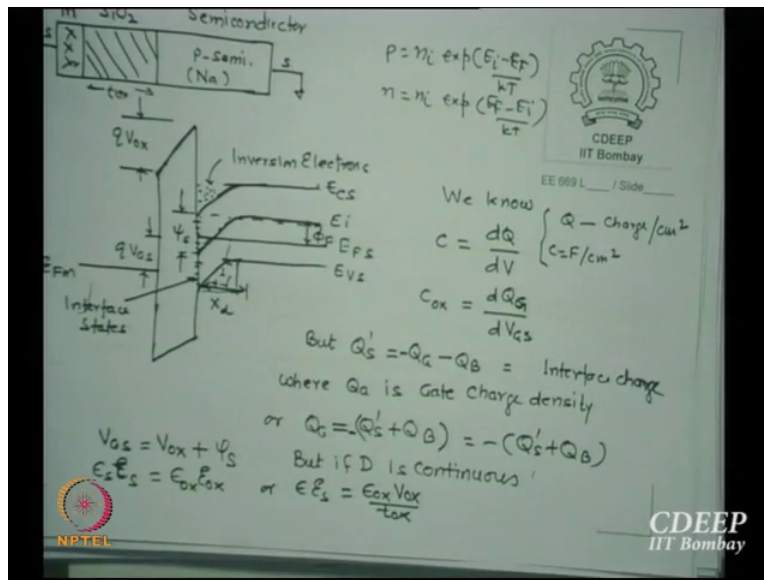 M SiO2 Semiconductor
S
P-semi.
(Na)
S
tox
qVox
Inversion Electrons
Ecs
Ei
ψs
φF
EFS
qVGS
EFm
EVS
Interface
States
Xd
P = ni exp(Ei-EF)/kT
n = ni exp(EF-Ei)/kT
CDEEP
IIT Bombay
EE 669 L___ / Slide___
We know
C = dQ/dV { Q - Charge/cm²
C=F/cm²
Cox = dQG/dVGS
But Q's = -QG - QB = Interface charge
where QG is Gate Charge density
or QG = -(Q's + QB) = -(Q's + QB)
VGS = Vox + ψs
But if D is continuous
εsℰs = εoxℰox or εℰs = εoxVox/tox
NPTEL
CDEEP
IIT Bombay